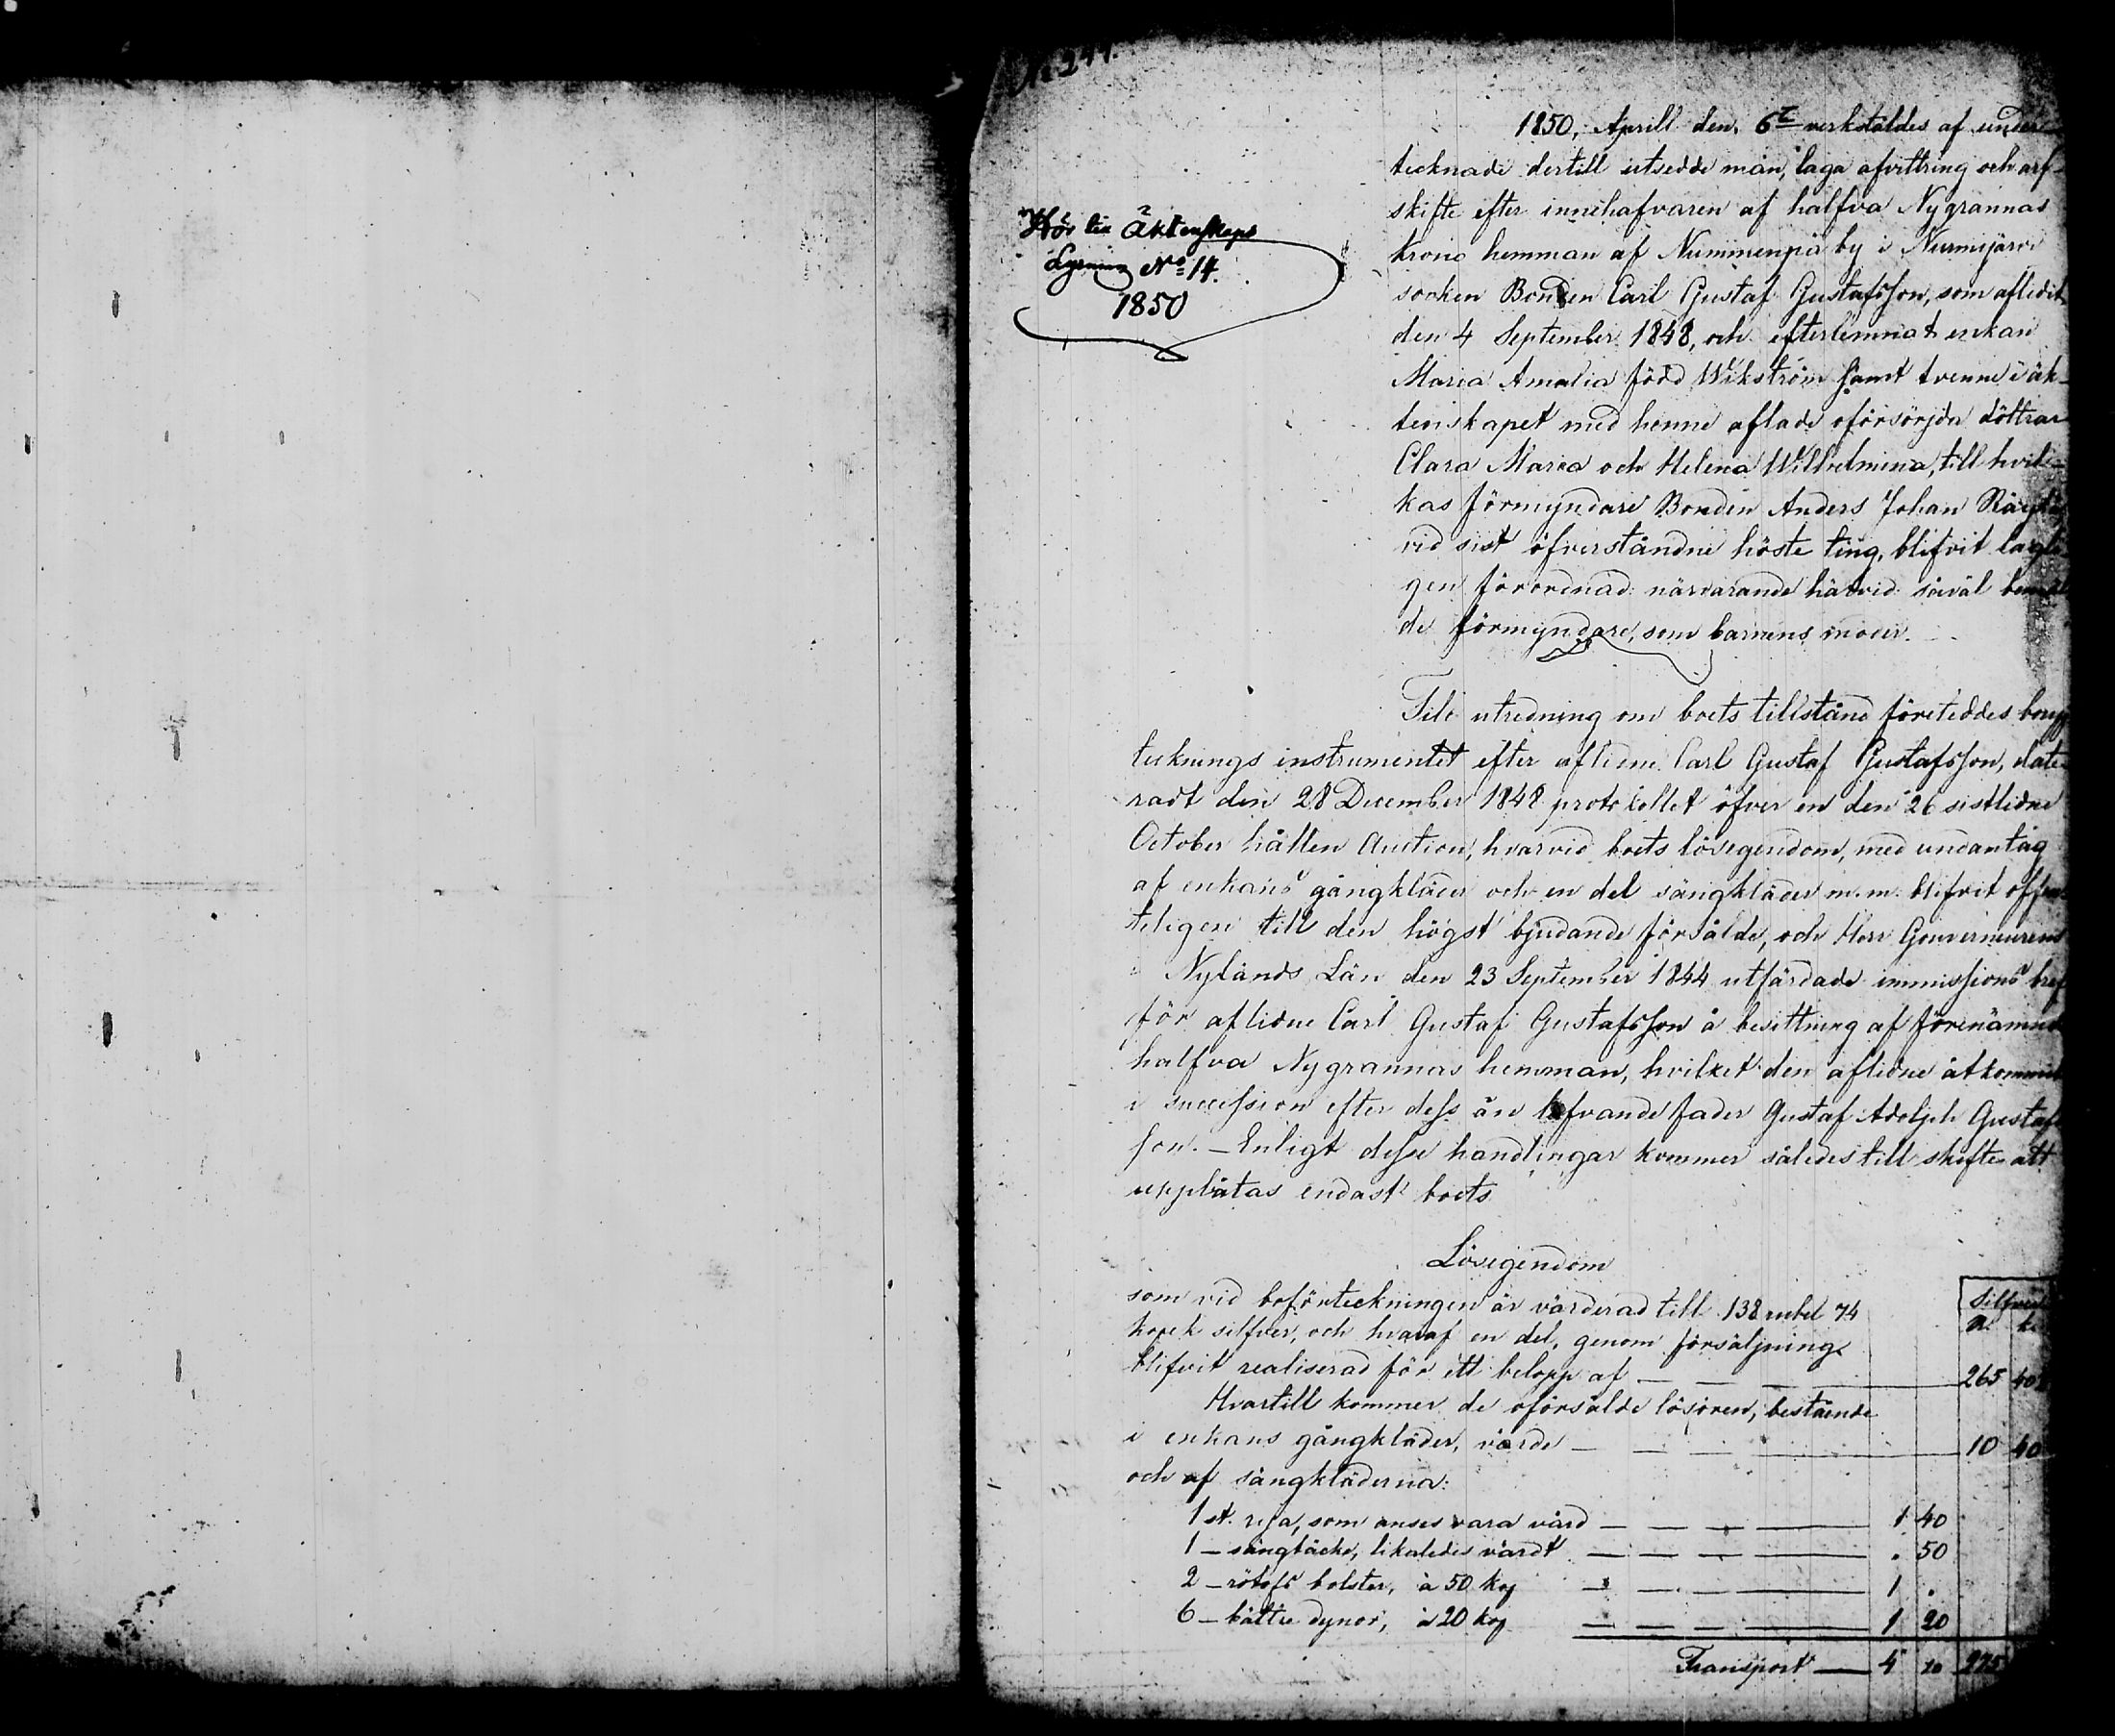 Hör till Äktenskaps
Lysning No 14.
1850
1850, Aprill den 6te verkstäldes af under-
tecknade dertill utsedde män, laga afvittring och arf-
skifte efter innehafvaren af halfva Nygrannas
krono hemman af Nummenpä by i Nurmijärvi
socken Bonden Carl Gustaf Gustafsson, som aflidit
den 4 September 1848, och efterlemnat enkan
Maria Amalia född Wikström samt tvenne i äk-
tenskapet med henne aflade oförsörjda döttrar
Clara Maria och Helena Wilhelmina, till hvil-
kas förmyndare Bonden Anders Johan
vid sist öfverståndne höste ting, blifvit lagli-
gen förordnad: närvarande härvid såväl bemäl-
de förmyndare, som barnens moder.
Till utredning om boets tillstånd företeddes boupp-
tecknings instrumentet efter aflidne Carl Gustaf Gustafsson, date-
radt den 28 December 1848 protocollet öfver en den 26 sistlidne
October hållen Auction, hvarvid boets lösegendom, med undantag
af enkans gångkläder och en del sängkläder m.m. blifvit offen-
teligen till den högst bjudande försålde, och Herr Gouverneurens
i Nylands Län den 23 September 1844 utfärdade immissions bref
för aflidne Carl Gustaf Gustafsson å besittning af förenämnde
halfva Nygrannas hemman, hvilket den aflidne åtkommit
i succession efter dess än lefvande fader Gustaf Adolph Gustafs-
son. - Enligt desse handlingar kommer således till skifte att
upplåtas endast boets
Lösegendom
som vid boförteckningen är värderad till 138 rubel 74
kopek silfver, och hvaraf en del, genom försäljning
blifvit realiserad för ett belopp af 265 40
Hvartill kommer de oförsålde lösören, bestående
i enkans gångkläder, värde 10 40
och af sängkläderna:
1 st. rya, som anses vara värd 1 40
1 - sängtäcke, likaledes värdt . 50
2 - bolster, à 50 kop 1 .
6 - bättre dynor, à 20 kop 1 20
Silfver
R. k.
Transport 4 10 275